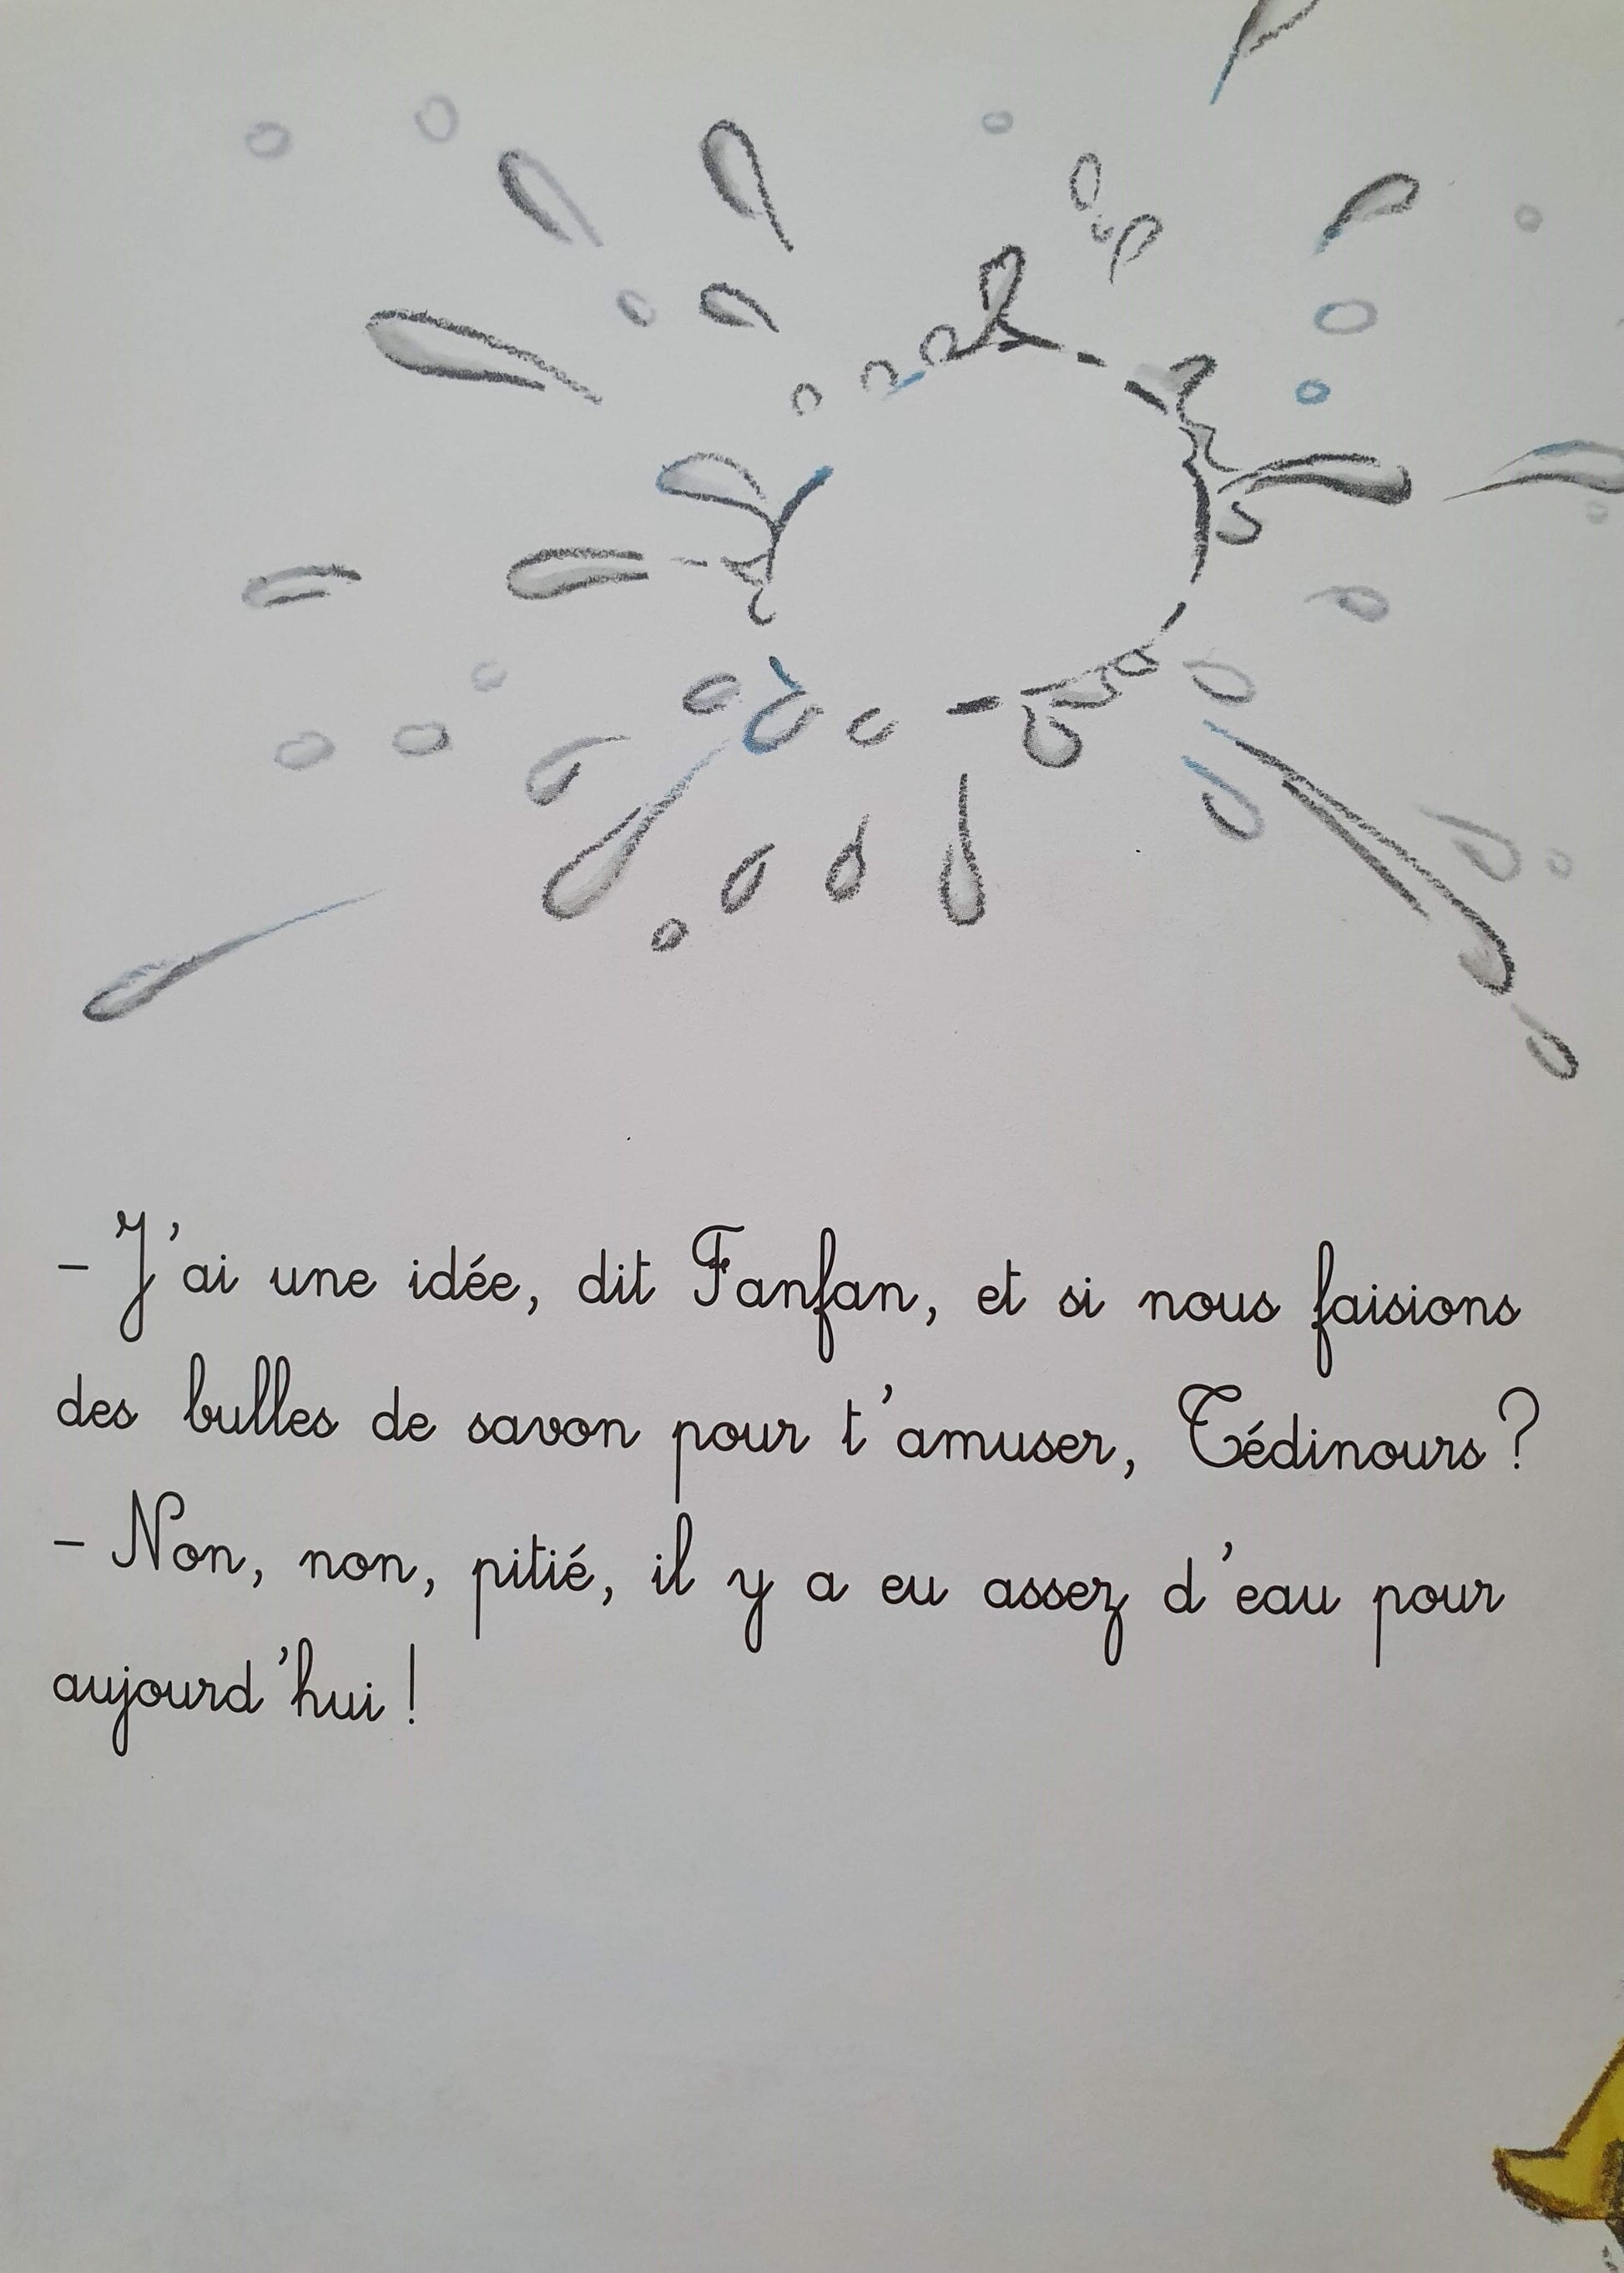 – J'ai une idée, dit Fanfan, et si nous faisions
des bulles de savon pour t'amuser, Tédinours ?
– Non, non, pitié, il y a eu assez d'eau pour
aujourd'hui !